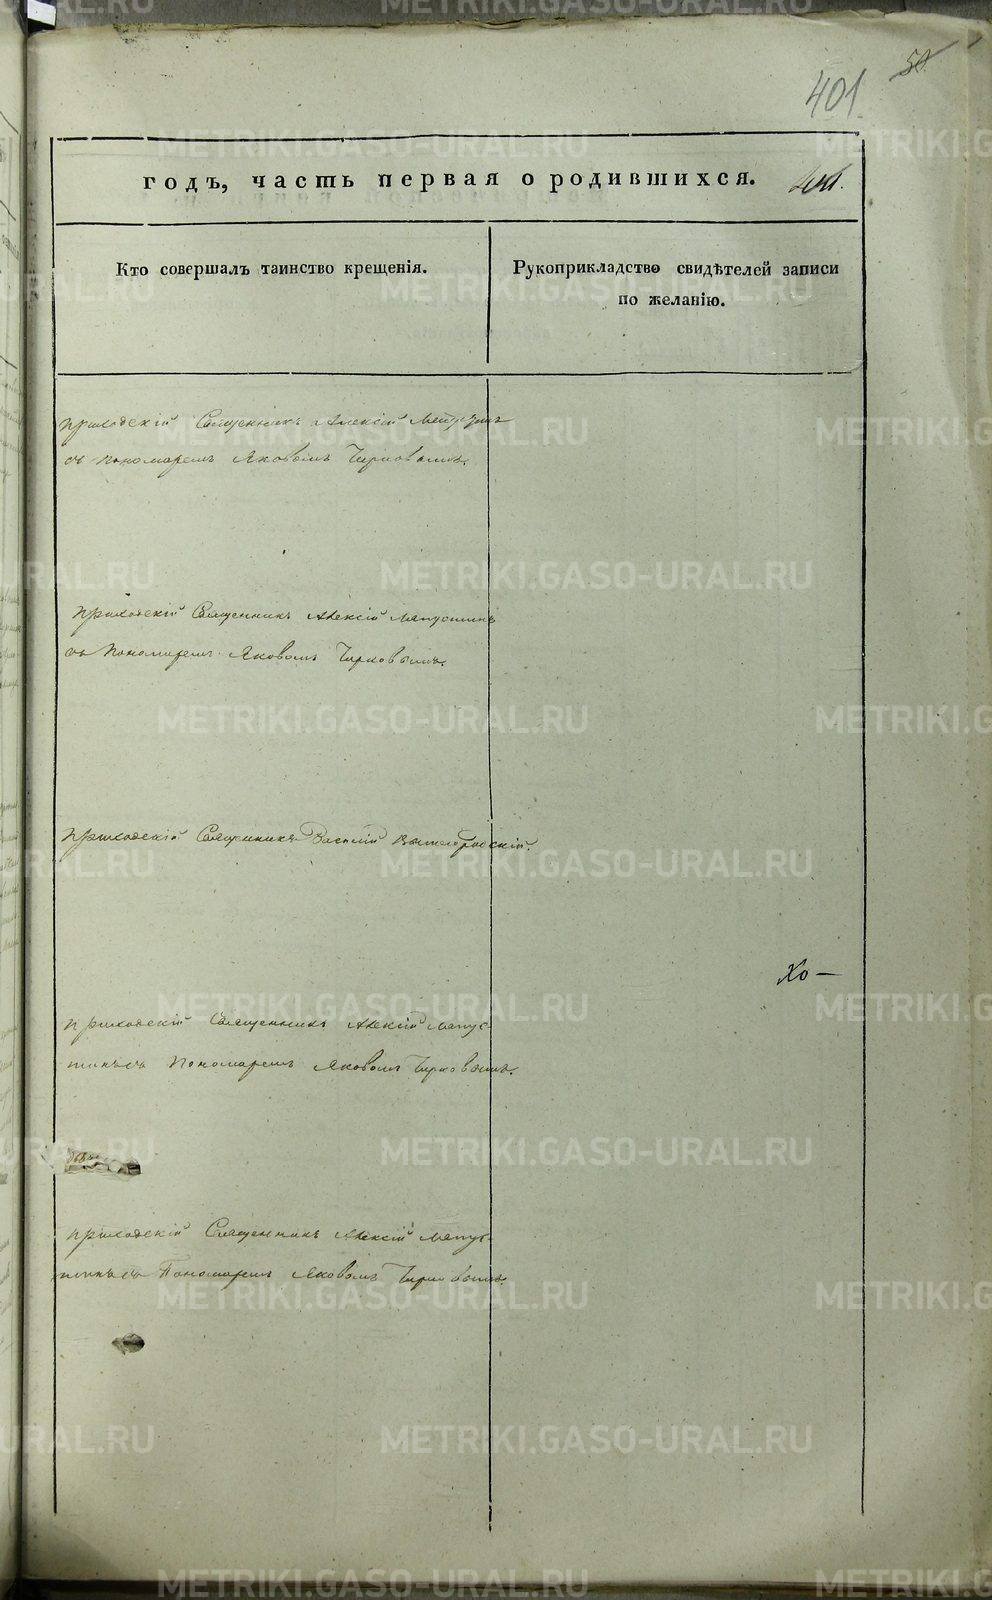 50
401.
годъ, часть первая о родившихся.
Кто совершалъ таинство крещенія.
Рукоприкладство свидѣтелей записи
по желанію.
Приходскій Священникъ Алексій
съ пономаремъ Яковомъ Чирковымъ.
Приходскій Священникъ Алексій Мапустинъ
съ Пономаремъ Яковомъ Чирковымъ.
Приходскій Священникъ Василій Вышегородскій.
Хо —
Приходскій Священникъ Алексій Мапус-
тинъ съ Пономаремъ Яковомъ Чирковымъ.
Приходскій Священникъ Алексій Мапус-
тинъ съ Пономаремъ Яковомъ Чирковымъ.
METRIKI.GASO-URAL.RU